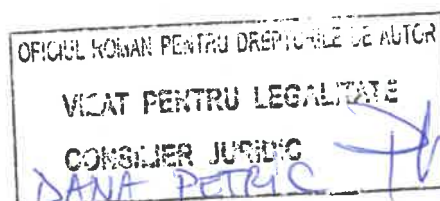 OFICIUL ROMAN PENTRU DREPTURILE DE AUTOR
VIZAT PENTRU LEGALITATE
CONSILIER JURIDIC
DANA PETRIC